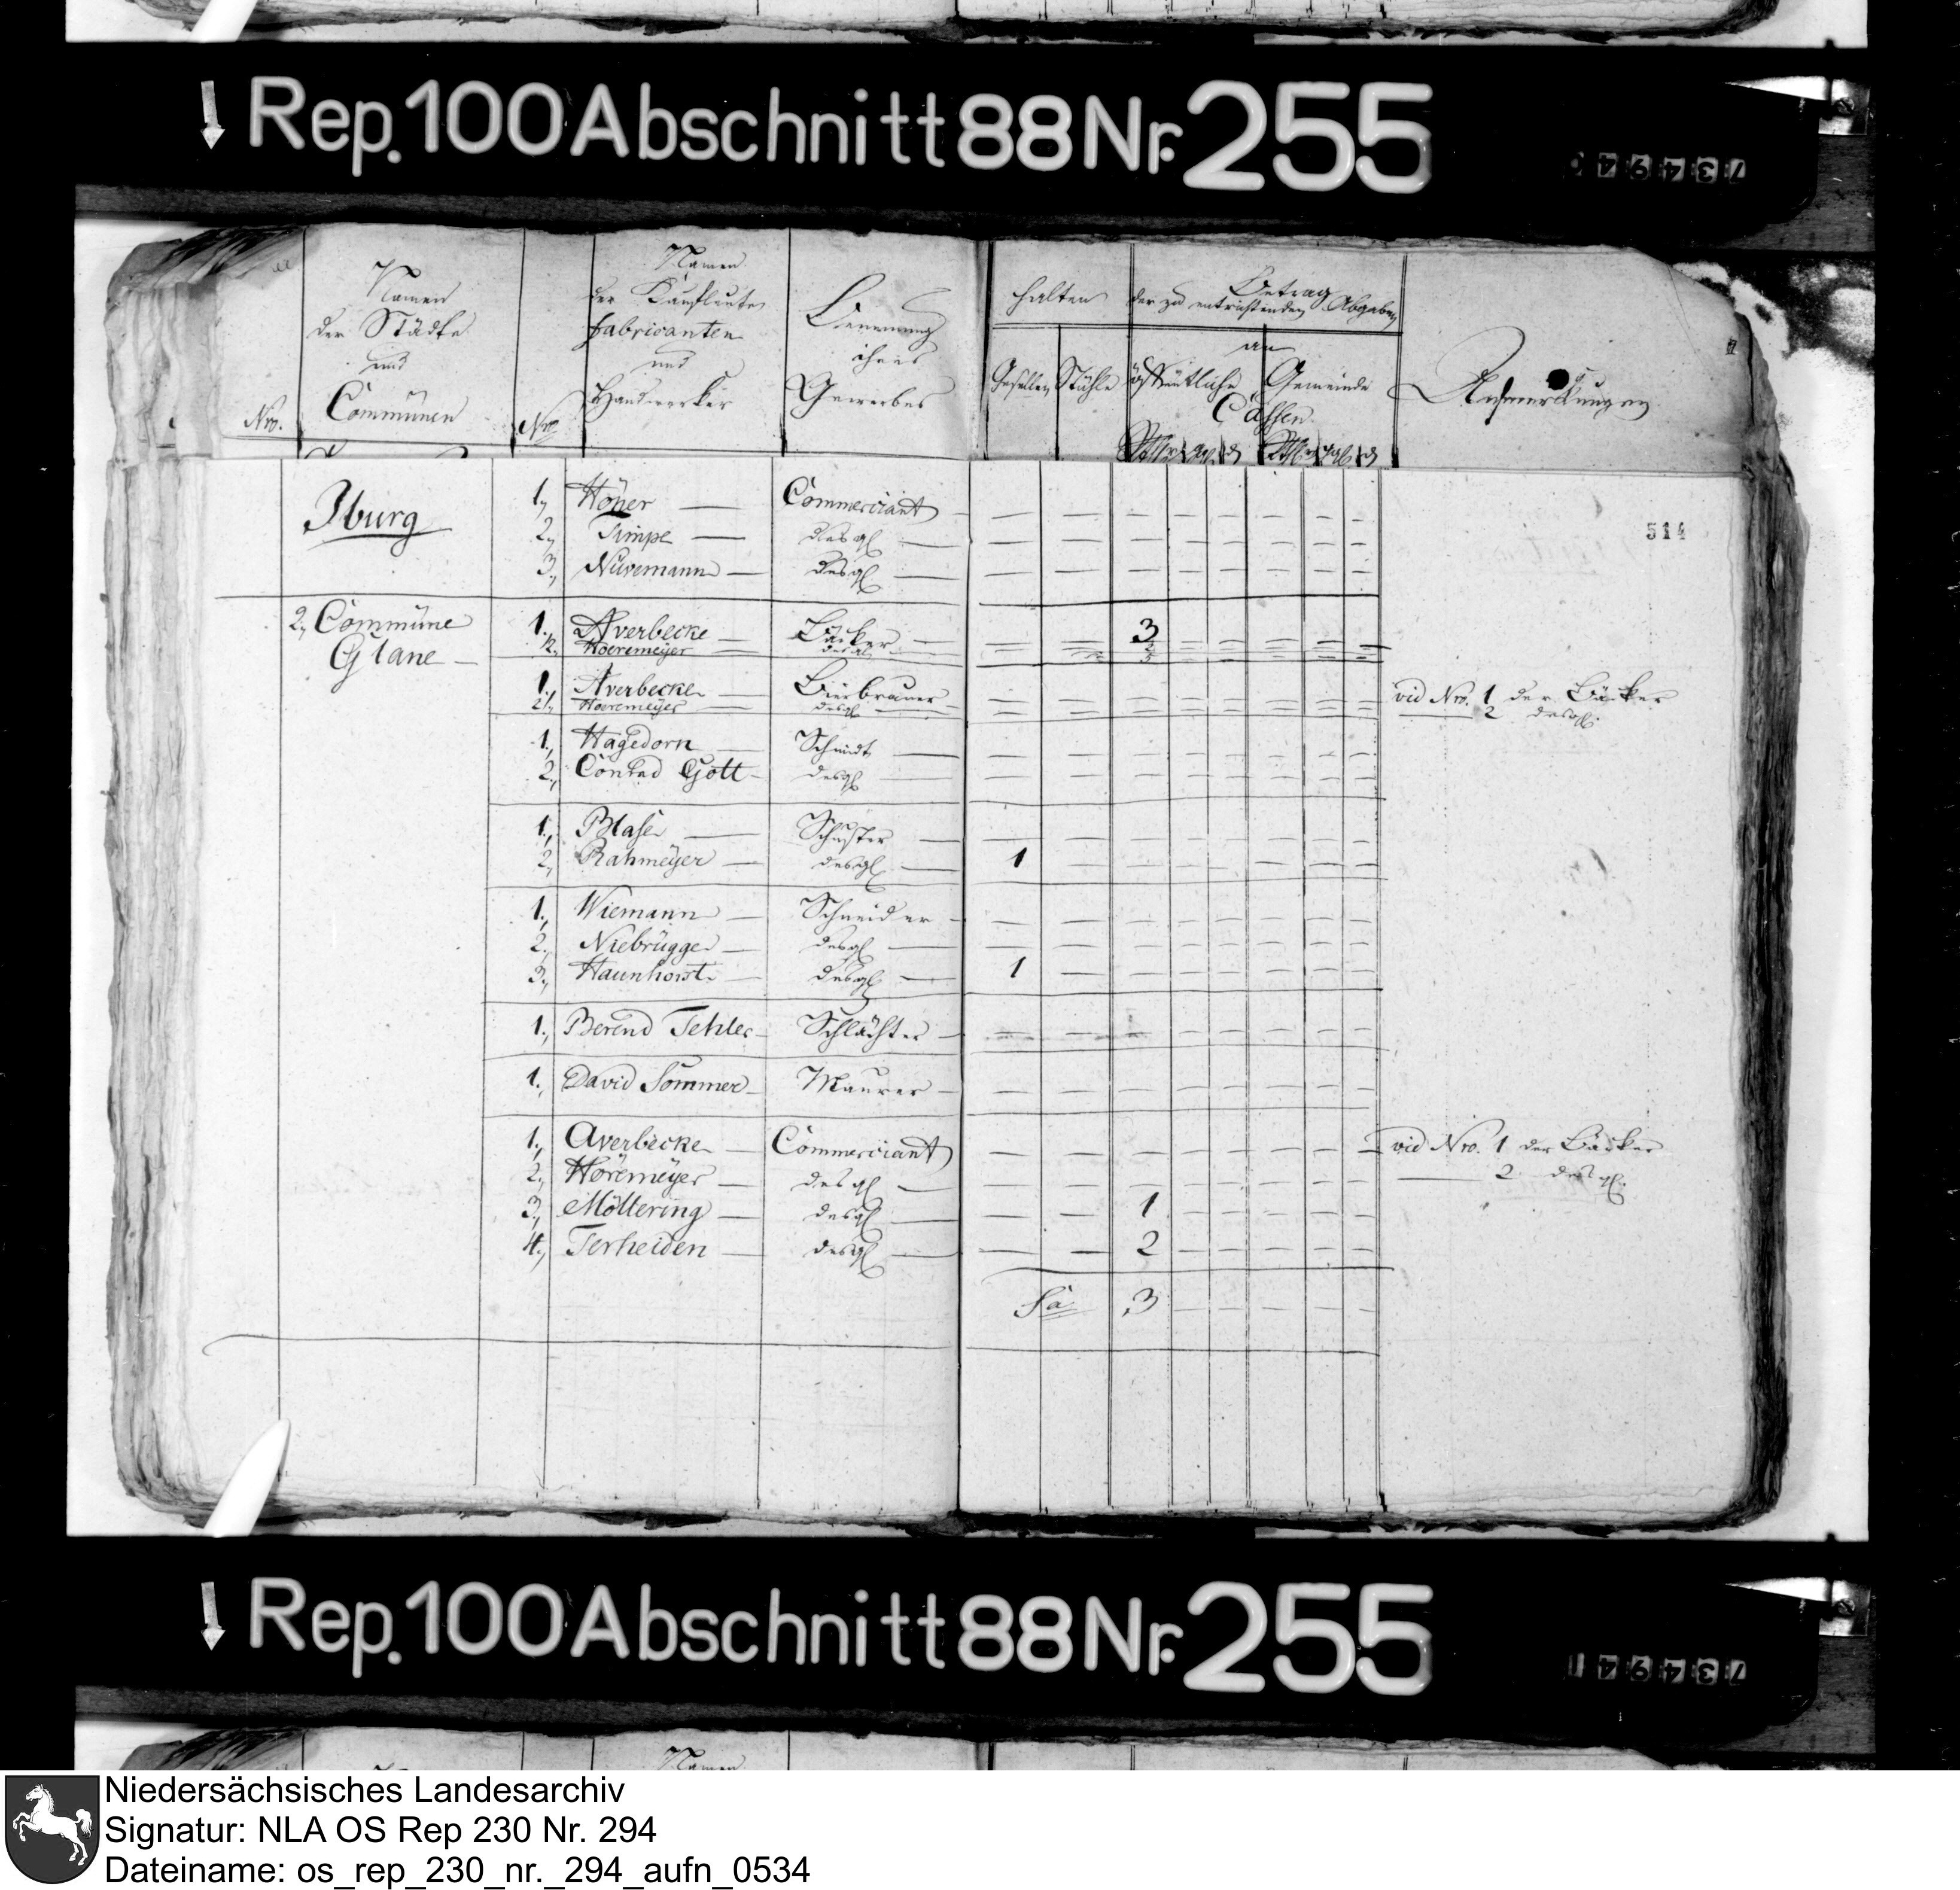 Rep. 100 Abschnitt 88 Nr. 255
Nro.
Namen
der Städte
und
Communen
Nro
Namen
der Kaufleute
Fabricanten
und
Handwerker
Benennung
ihres
Gewerbes
halten
Gesellen Stühle
Betrag
der zu entrichtenden Abgaben
an
öffentliche Gemeinde
Cassen
Anmerkungen
514
Iburg
1, Höper — Commerciant —
2, Timpe — desgl —
3, Nüvemann — desgl —
2, Commüne
Glane —
1. Averbecke — Bäcker — 3
2. Hoeremeyer — desgl — 2
5
1. Averbecke — Bierbrauer — vid Nro. 1 der Bäcker
2, Hoeremeyer — desgl — 2 desgl.
1, Hagedorn — Schmidt —
2, Conrad Gott — desgl —
1, Blase — Schuster —
2, Rahmeyer — desgl — 1
1, Wiemann — Schneider —
2, Niebrügge — desgl —
3, Haunhorst — desgl — 1
1, Berend — Schlächter —
1, David Sommer — Maurer —
1, Averbecke — Commerciant — vid Nro. 1 der Bäcker
2, Höremeyer — desgl — 2 desgl.
3, Möllering — desgl — 1
4, Terheiden — desgl — 2
Sa 3
Rep. 100 Abschnitt 88 Nr. 255
Namen
Niedersächsisches Landesarchiv
Signatur: NLA OS Rep 230 Nr. 294
Dateiname: os_rep_230_nr._294_aufn_0534